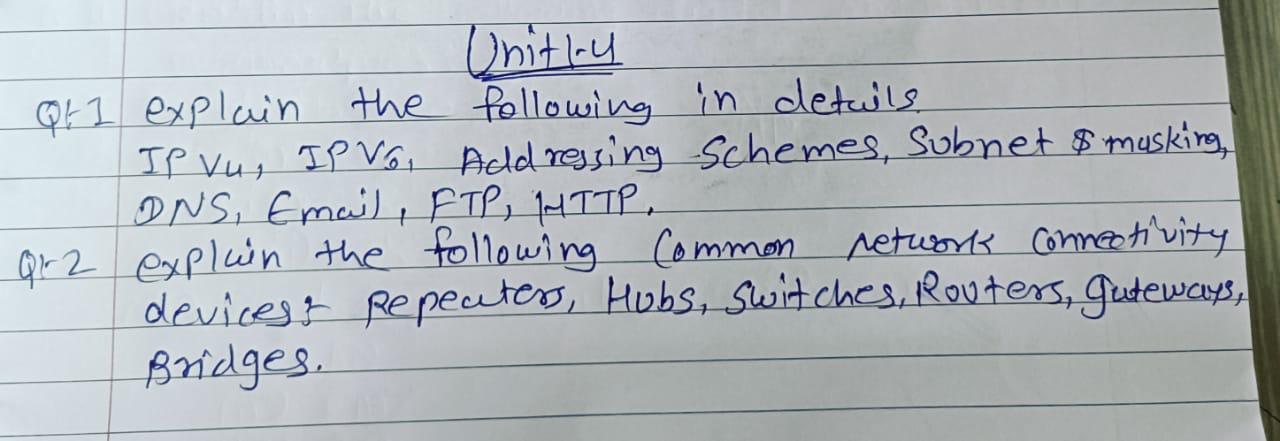 Unit-4
Q:-1 explain the following in details
IPV4, IPV6, Addressing Schemes, Subnet & masking,
DNS, Email, FTP, HTTP.
Q:-2 explain the following Common network connectivity
devices:- Repeaters, Hubs, switches, Routers, gateways,
Bridges.